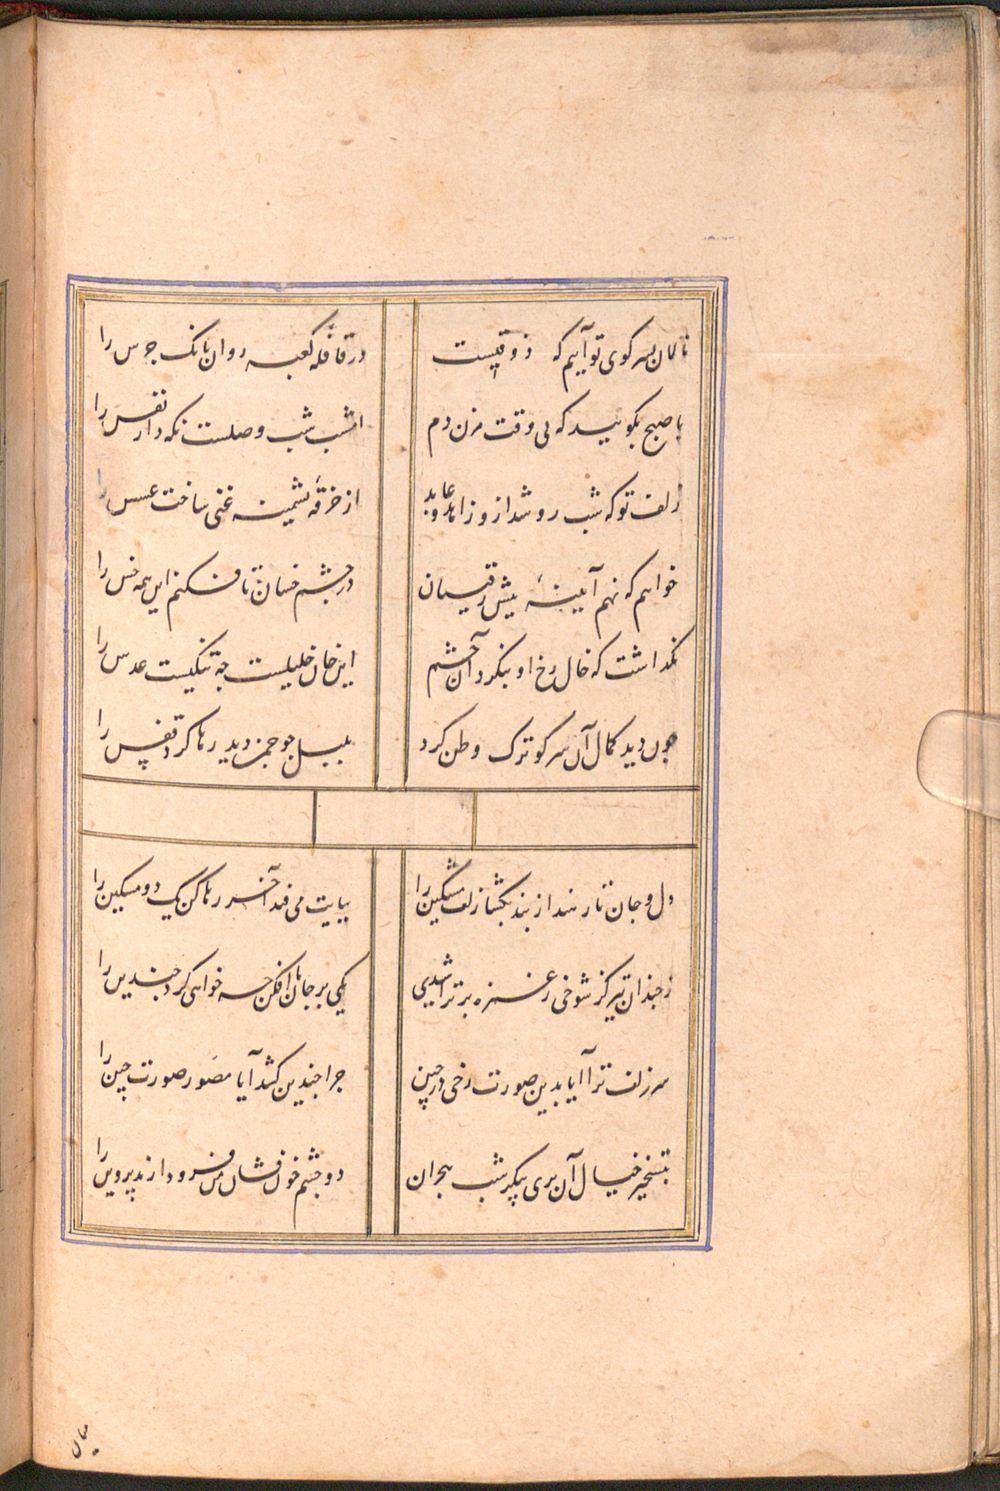 نالان بسر کوی تو آییم که ذوقیست در قافله کعبه روان بانک جرس را
با صبح بکویید که بی وقت مزن دم امشب شب وصلست نکه دار نفس را
زلف تو که شب رو شد از و زاهد و عابد از خرقه پشمینه غنی ساخت عسس را
خواهم که نهم آیینه پیش رقیبان در چشم خسان تا فکنم این همه خس را
نکذاشت که خال رخ او بنکرد آن چشم این خان خلیلست چه تنکیست عدس را
چون دید کمال آن سر کو ترک وطن کرد بلبل چو چمن دید رها کرد قفس را
دل و جان تا رهند از بند بکشا زلف مشکین را بپایت می فتد آخر رها کن یک دو مسکین را
ز چندان تیر کز شوخی ز غمزه بر تراشیدی یکی بر جان ما افکن چه خواهی کرد چندین را
سر زلف ترا آیا بدین صورت رخی در چین چرا چندین کشد آیا مصور صورت چین را
بتسخیر خیال آن پری پیکر شب هجران دو چشم خون فشان من فرود ارند پروین را